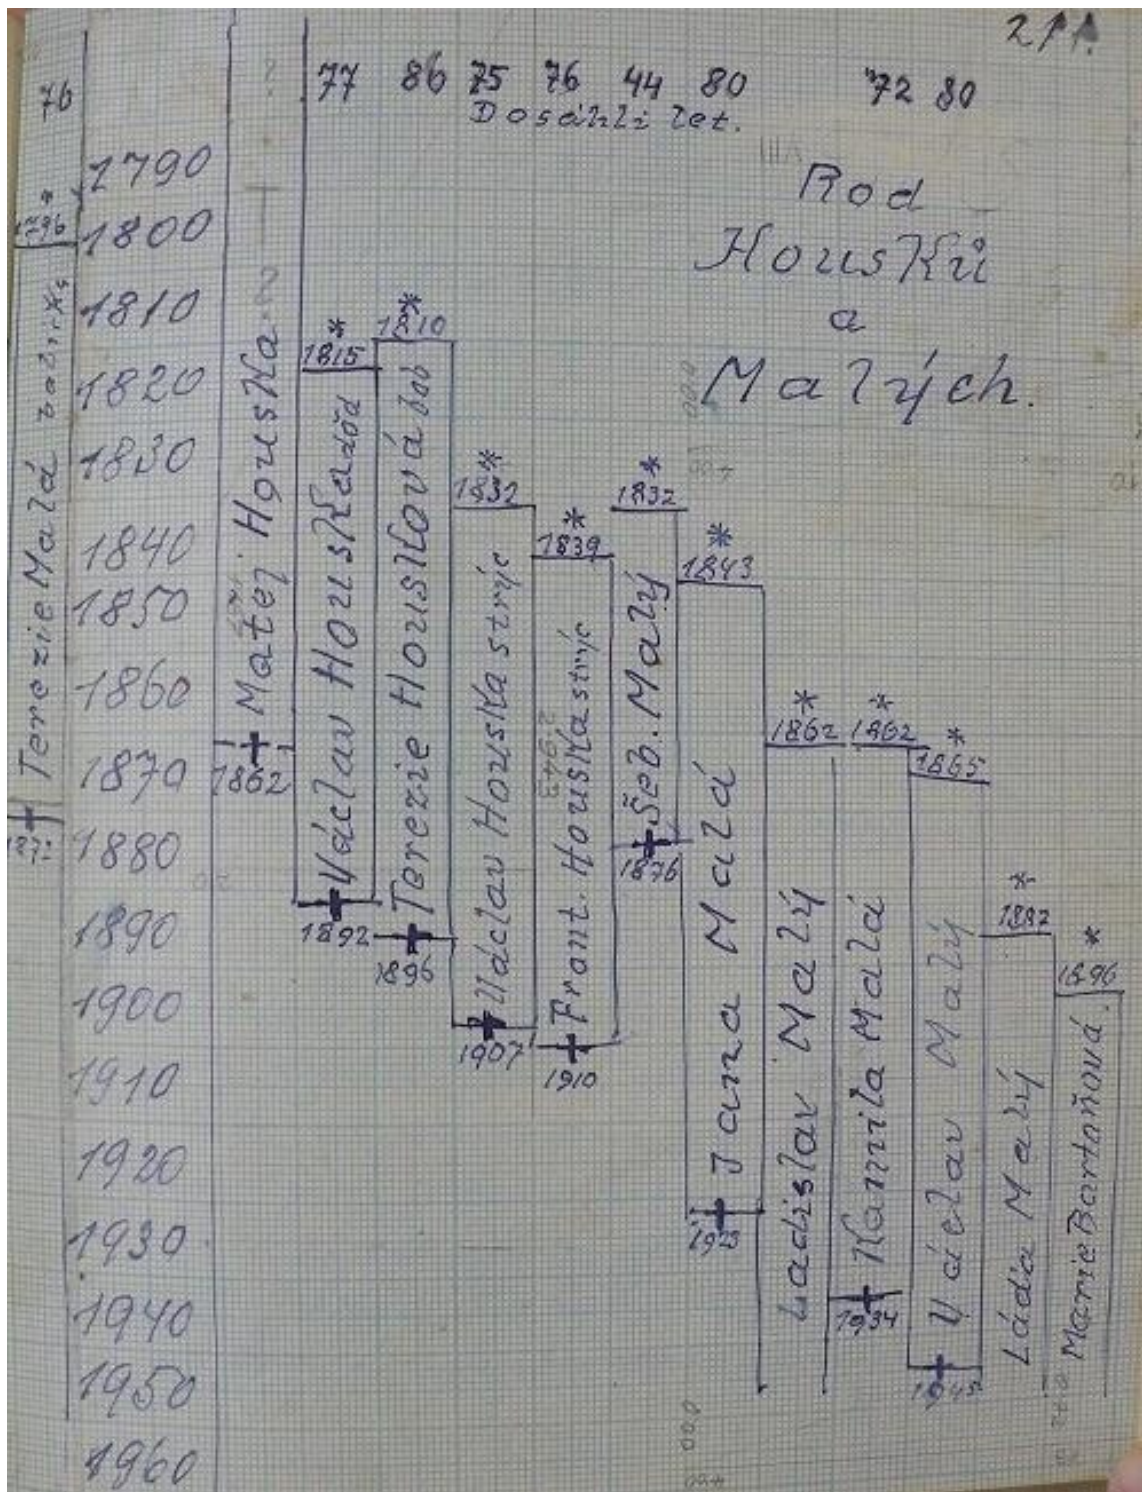 211.
76 ? 77 86 75 76 44 80 72 80
Dosáhli let.
Rod
Housků
a
Malých.
1790
1800
1810
1820
1830
1840
1850
1860
1870
1880
1890
1900
1910
1920
1930
1940
1950
1960
* 1796
Terezie Malá
? Matěj Houska
1862
* 1815
Václav Houska děd
1892
* 1810
Terezie Housková bab
1896
* 1832
Václav Houska strýc
1907
* 1839
Frant. Houska strýc
1910
* 1832
Šeb. Malý
1876
* 1843
Jana Malá
1923
* 1862
Ladislav Malý
* 1862
Kamila Malá
1934
* 1865
Václav Malý
1945
* 1892
Láďa Malý
* 1896
Marie Bartoňová.